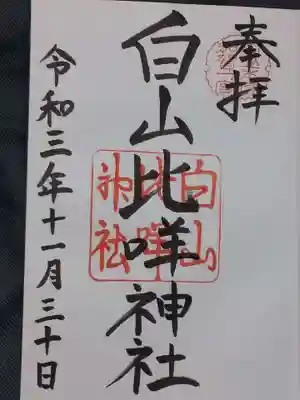 奉拝
白山比咩神社
令和三年十一月三十日
白山
比咩
神社